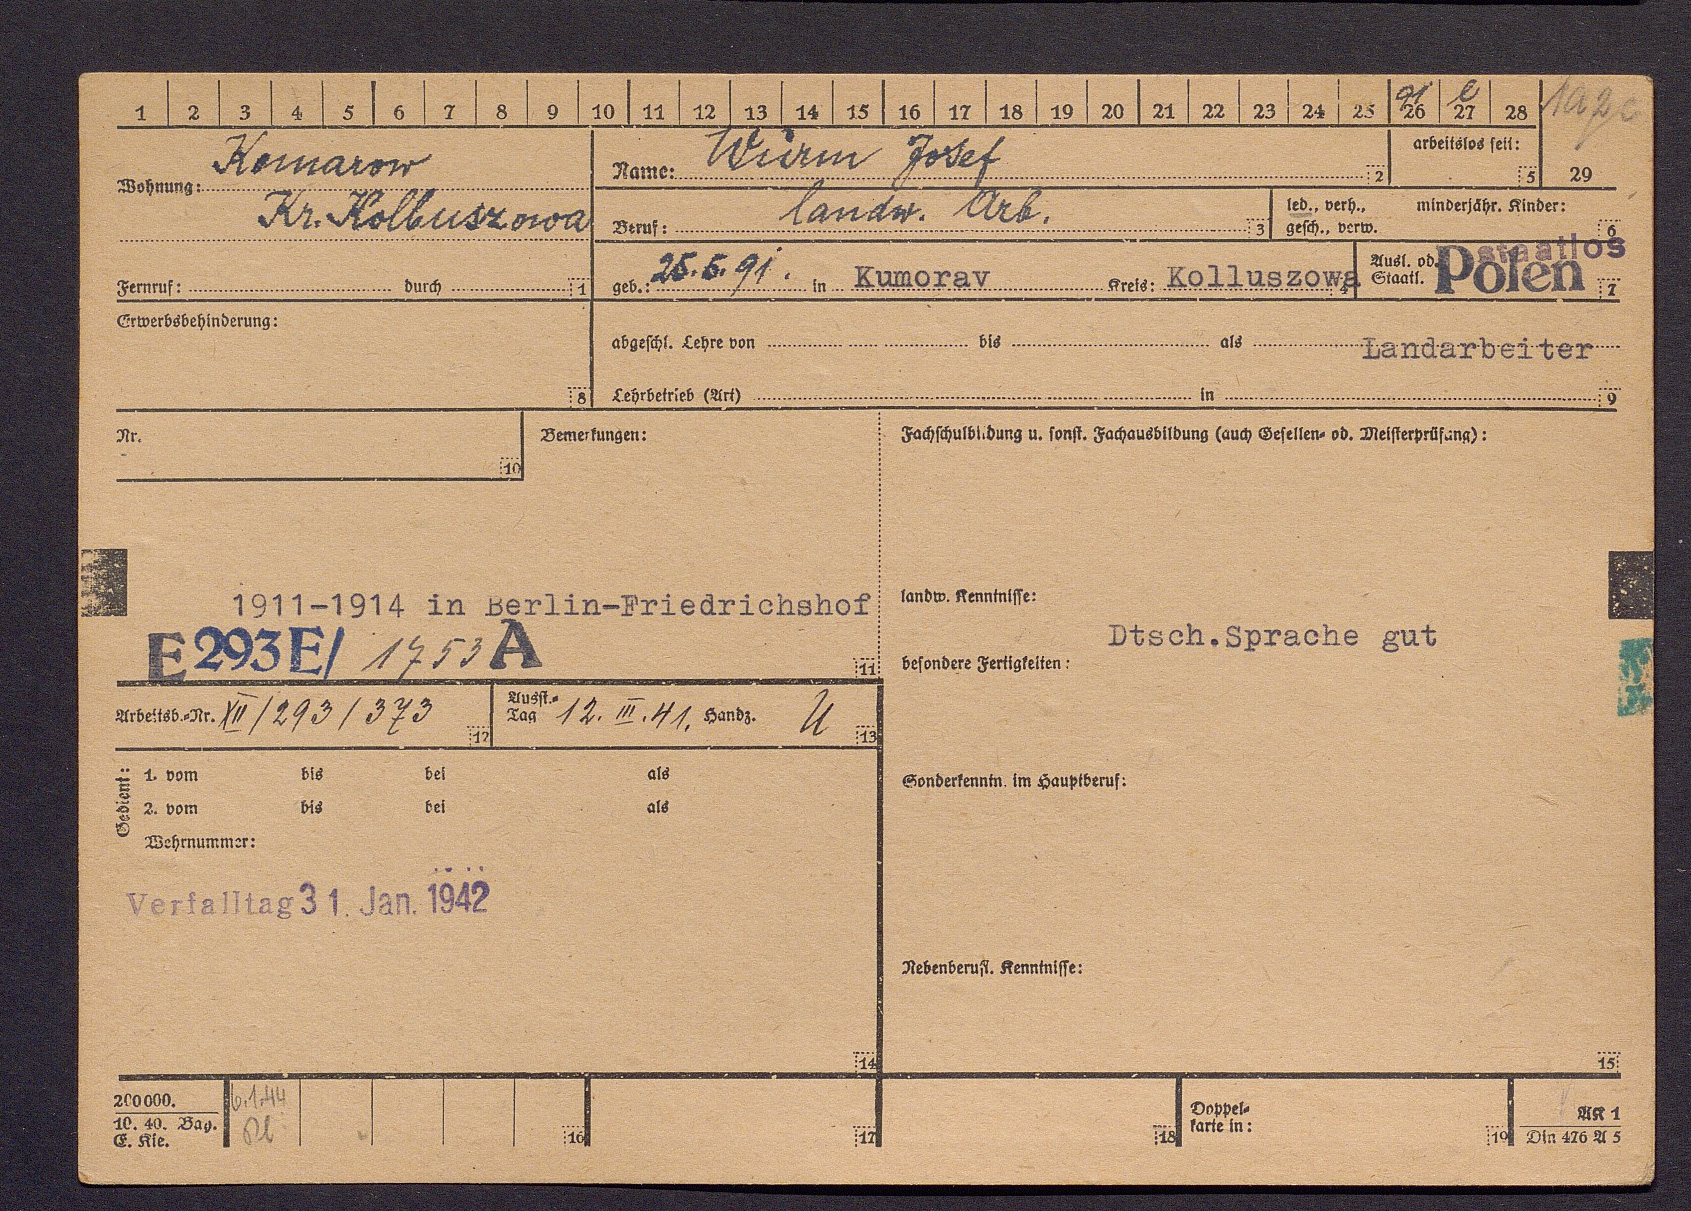 1 2 3 4 5 6 7 8 9 10 11 12 13 14 15 16 17 18 19 20 21 22 23 24 25 26 27 28
91 e
Wohnung: Komarow
Kr. Kolbuszowa
Name: Wurm Josef 2
arbeitslos seit: 5
29
Beruf: landw. Arb. 3
led., verh., minderjähr. Kinder:
gesch., verw. 6
Fernruf: durch 1
geb.: 25.5.91. in Kumorav Kreis: Kolluszowa 4
Ausl. od. Staatl. Polen staatlos 7
Erwerbsbehinderung: 8
abgeschl. Lehre von bis als Landarbeiter
Lehrbetrieb (Art) in 9
Nr. 10
Bemerkungen:
Fachschulbildung u. sonst. Fachausbildung (auch Gesellen- od. Meisterprüfung):
1911-1914 in Berlin-Friedrichshof
E 293 E/ 1753 A
11
landw. Kenntnisse:
Dtsch.Sprache gut
besondere Fertigkeiten:
Arbeitsb.-Nr. XII/293/373 12
Ausst.-Tag 12. III. 41. Handz. U 13
Gedient: 1. vom bis bei als
2. vom bis bei als
Wehrnummer:
Sonderkenntn. im Hauptberuf:
Verfalltag 31. Jan. 1942
Nebenberufl. Kenntnisse:
14
15
200000.
10. 40. Bag.
E. Kie.
6.1.44
16
17
18
Doppel-
karte in:
19
AK 1
Din 476 A 5